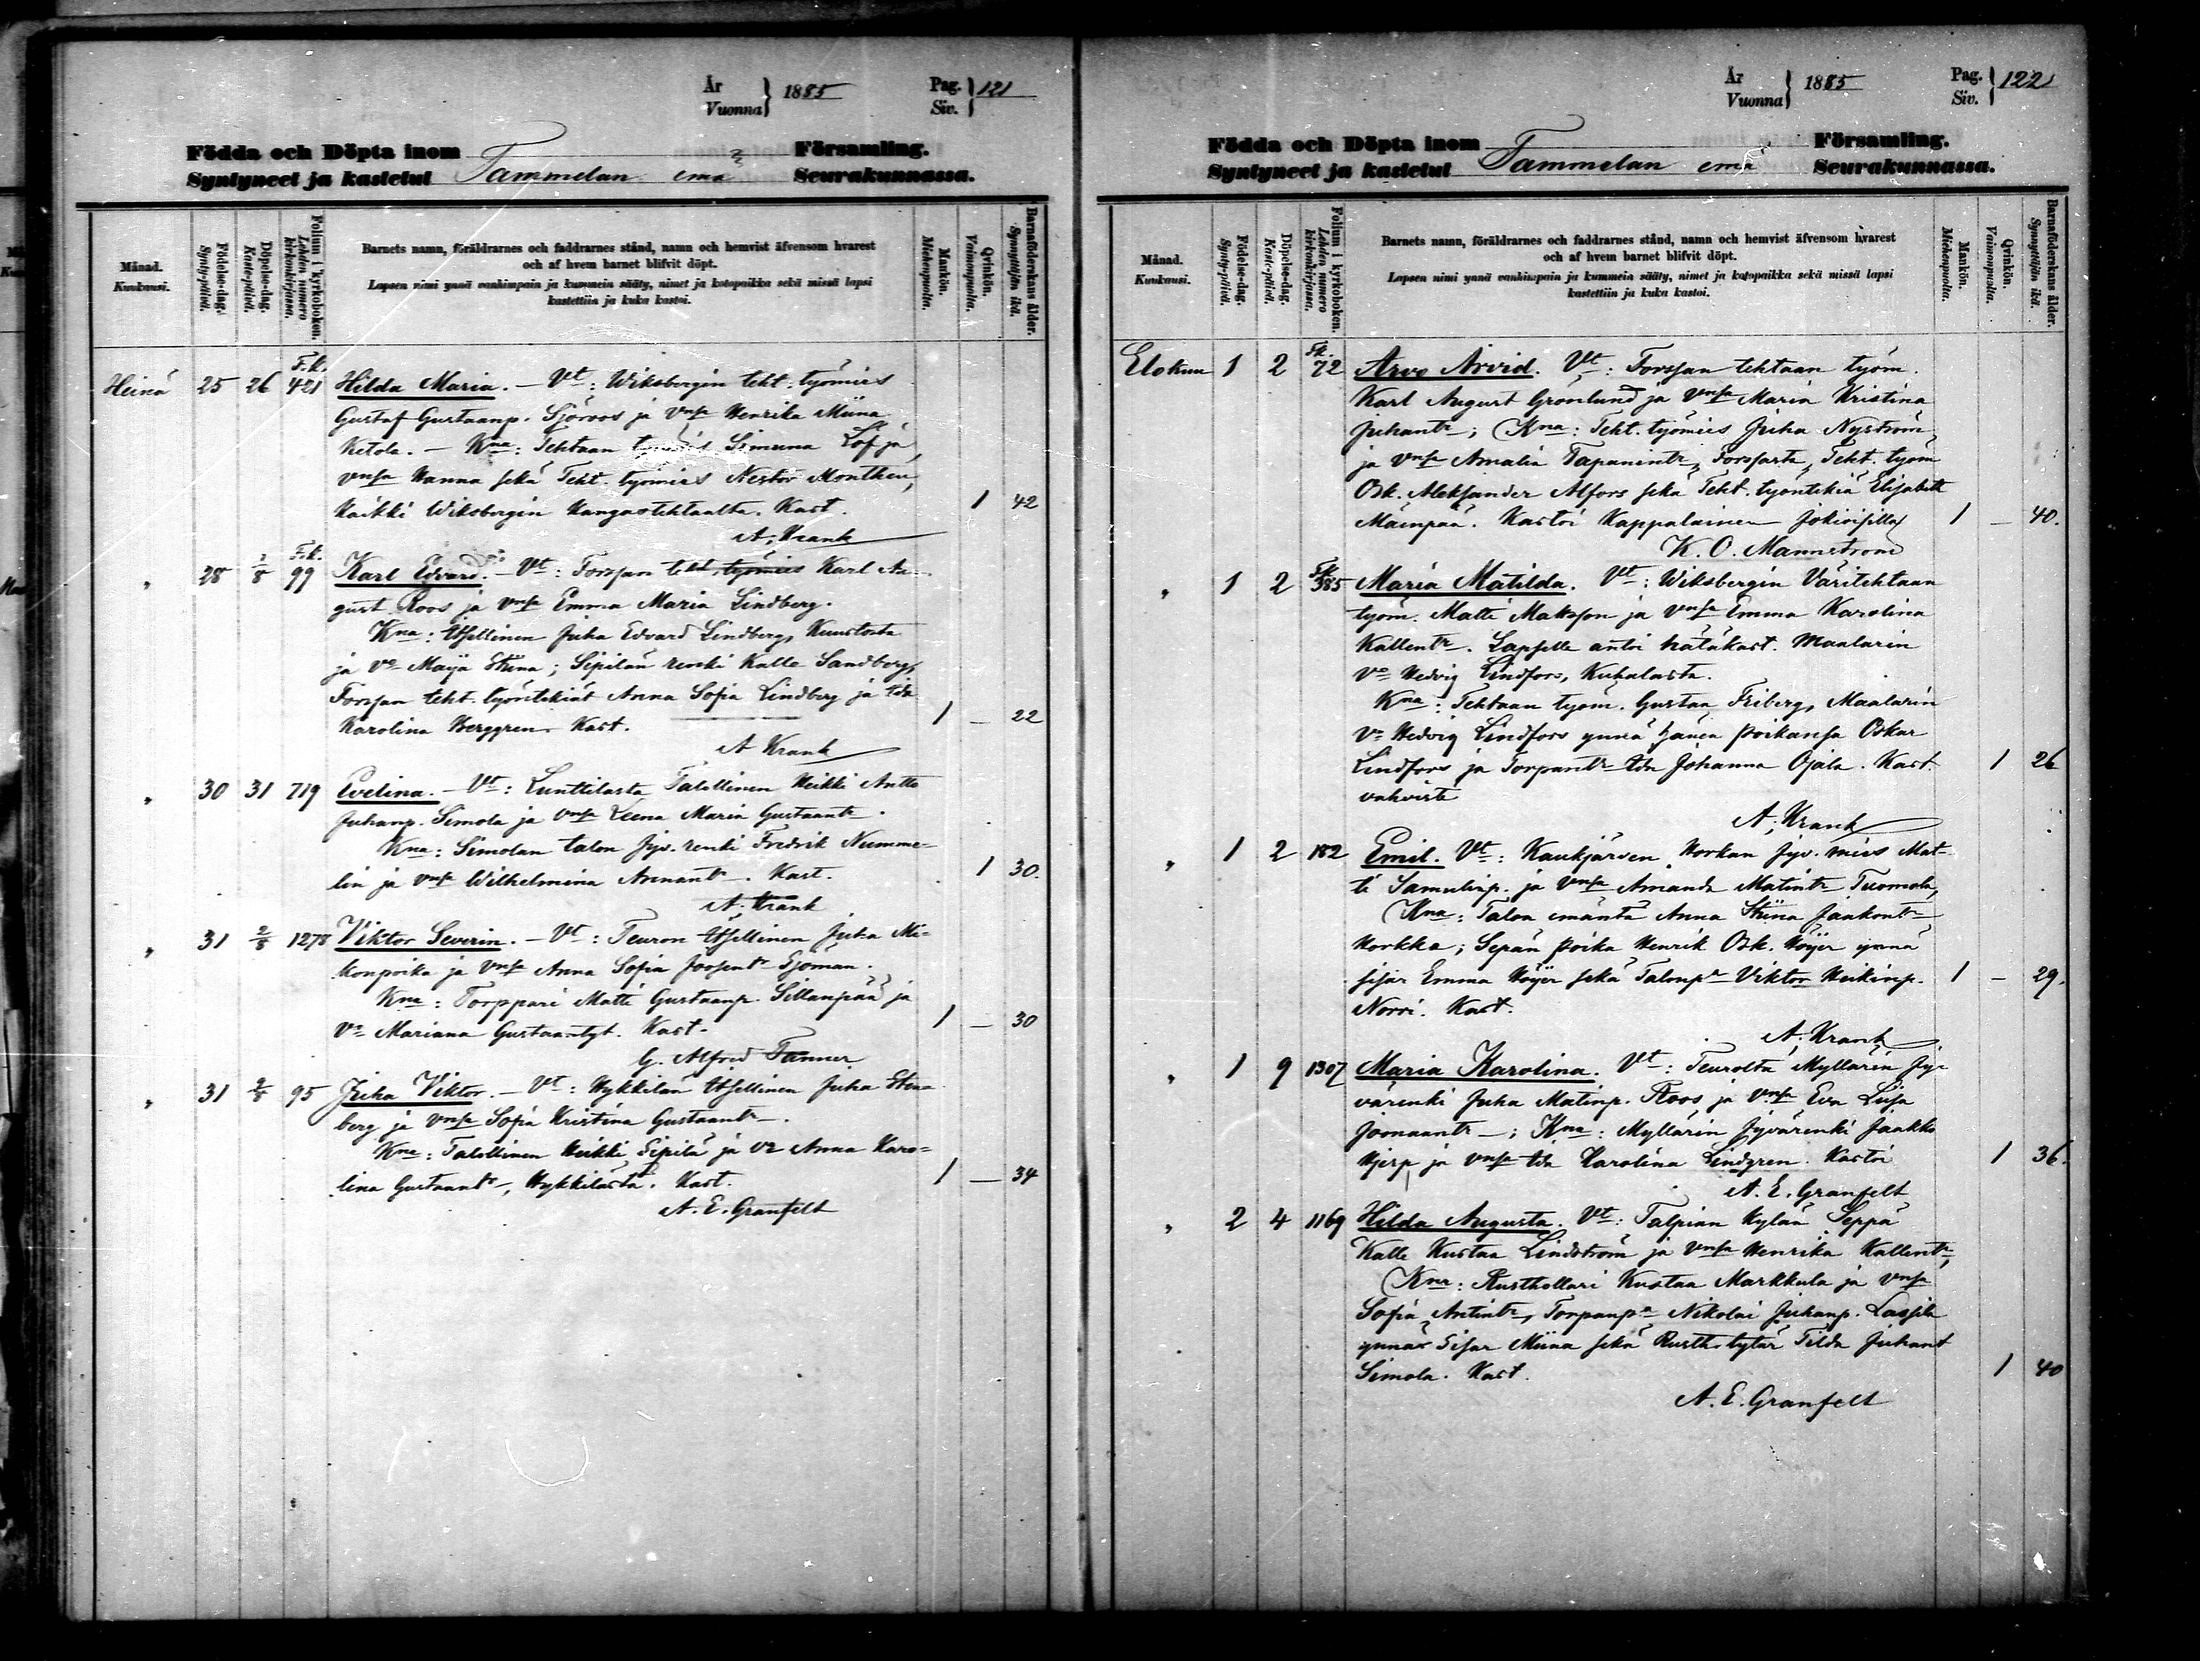 År
Vuonna } 1885
Pag.
Siv. } 121
Födda och Döpta inom Församling.
Syntyneet ja kastetut Tammelan emä Seurakunnassa.
Månad.
Kuukausi.
Födelse-dag.
Synty-päivä.
Döpelse-dag.
Kaste-päivä.
Folium i kyrkoboken.
Lehden numero kirkonkirjassa.
Barnets namn, föräldrarnes och faddrarnes stånd, namn och hemvist äfvensom hvarest
och af hvem barnet blifvit döpt.
Lapsen nimi ynnä vanhimpain ja kummein sääty, nimet ja kotopaikka sekä missä lapsi
kastettiin ja kuka kastoi.
Mankön.
Miehenpuolta.
Qvinkön.
Vaimonpuolta.
Barnaföderskans ålder.
Synnyttäjän ikä.
Heinä 25 26 F.k. 421 Hilda Maria. – Vt: Wiksbergin teht. työmies
Gustaf Gustaanp. Sjöroos ja vnsa Henrika Miina
Ketola. – Kna: Tehtaan työmies Simuna Löf ja
vnsa Hanna sekä Teht. työmies Nestor Monthen,
Kaikki Wiksbergin Kangastehtaalta. Kast. 1 42
A. Krank
" 28 1/8 F.k. 99 Karl Edvard. – Vt: Forssan teht. työmies Karl Au-
gust Roos ja vnsa Emma Maria Lindberg.
Kna: Itsellinen Juha Edvard Lindberg, Kuustosta
ja vo Maija Stina; Sipilän renki Kalle Sandberg,
Forssan teht. työntekiät Anna Sofia Lindberg ja Ida
Karolina Berggren. Kast. 1 — 22
A Krank
" 30 31 719 Evelina. – Vt: Lunttilasta Talollinen Heikki Antto
Juhanp. Simola ja vnsa Leena Maria Gustaantr.
Kna: Simolan talon jyv. renki Fredrik Numme-
lin ja vnsa Wilhelmina Annantr. Kast. 1 30.
A. Krank
" 31 2/8 1278 Viktor Severin. – Vt: Teuron Itsellinen Juha Mi-
konpoika ja vnsa Anna Sofia Joosentr Sjöman.
Kna: Torppari Matti Gustaanp. Sillanpää ja
vo Mariana Gustaantyt. Kast. 1 — 30
G. Alfred Tanner
" 31 2/8 95 Juha Viktor. – Vt: Hykkilän Itsellinen Juha Sten-
berg ja vnsa Sofia Kristina Gustaantr.
Kna: Talollinen Heikki Sipilä ja vo Anna Karo-
lina Gustaantr, Hykkilästä. Kast. 1 — 34
A. E. Granfelt
År
Vuonna } 1885
Pag.
Siv. } 122
Födda och Döpta inom Församling.
Syntyneet ja kastetut Tammelan emä Seurakunnassa.
Månad.
Kuukausi.
Födelse-dag.
Synty-päivä.
Döpelse-dag.
Kaste-päivä.
Folium i kyrkoboken.
Lehden numero kirkonkirjassa.
Barnets namn, föräldrarnes och faddrarnes stånd, namn och hemvist äfvensom hvarest
och af hvem barnet blifvit döpt.
Lapsen nimi ynnä vanhimpain ja kummein sääty, nimet ja kotopaikka sekä missä lapsi
kastettiin ja kuka kastoi.
Mankön.
Miehenpuolta.
Qvinkön.
Vaimonpuolta.
Barnaföderskans ålder.
Synnyttäjän ikä.
Elokuu 1 2 Fk. 72 Arvo Arvid. Vt: Forssan tehtaan työm.
Karl August Grönlund ja vnsa Maria Kristina
Juhantr; Kna: Teht. työmies Juha Nyström
ja vnsa Amalia Tapanintr, Forssasta, Teht. työm
Osk. Aleksander Alfors sekä Teht. työntekiä Elisabeth
Mäenpää. Kastoi Kappalainen Jokioisilla 1 — 40.
K. O. Mannström
" 1 2 Fk. 385 Maria Matilda. Vt: Wiksbergin Väritehtaan
työm. Matti Matsson ja vnsa Emma Karolina
Kallentr. Lapselle antoi hätäkast. Maalarin
vo Hedvig Lindfors, Kuhalasta.
Kna: Tehtaan työm. Gustaa Friberg, Maalarin
vo Hedvig Lindfors ynnä hänen poikansa Oskar
Lindfors ja Torpantr Ida Johanna Ojala. Kast. 1 26
vahvisti
A. Krank
" 1 2 182 Emil. Vt: Kaukjärven Korkan jyv. mies Mat-
ti Samulinp. ja vnsa Amanda Matintr Tuomola,
Kna: Talon emäntä Anna Stiina Jaakontr
Korkka; Sepän poika Henrik Osk. Höijer ynnä
sisar Emma Höijer sekä Talonpa Viktor Heikinp. 1 — 29.
Norri. Kast.
A. Krank
" 1 9 1307 Maria Karolina. Vt: Teurolta Myllärin Jy-
värenki Juha Matinp. Roos ja vnsa Eva Liisa
Joonaantr; Kna: Myllärin Jyvärenki Jaakko
Hjerp ja vnsa Ida Karolina Lindgren. Kastoi 1 36.
A. E. Granfelt
" 2 4 1169 Hilda Augusta. Vt: Talpian Kylän Seppä
Kalle Kustaa Lindström ja vnsa Henrika Kallentr,
Kna: Rusthollari Kustaa Markkula ja vnsa
Sofia Antintr, Torpanpa Nikolai Juhanp. Lassila
ynnä sisar Miina sekä Rusth. tytär Tilda Juhant
Simola. Kast. 1 40
A. E. Granfelt